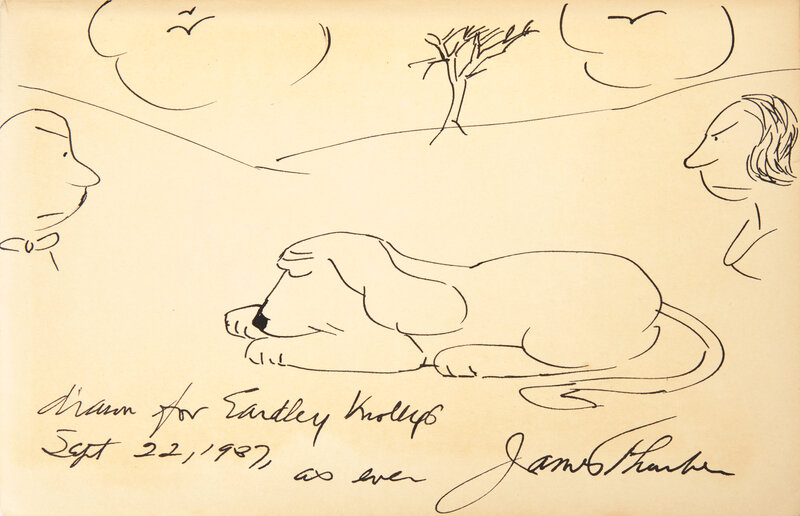 drawn for Eardley Knollys
Sept 22, 1937,
as ever
James Thurber